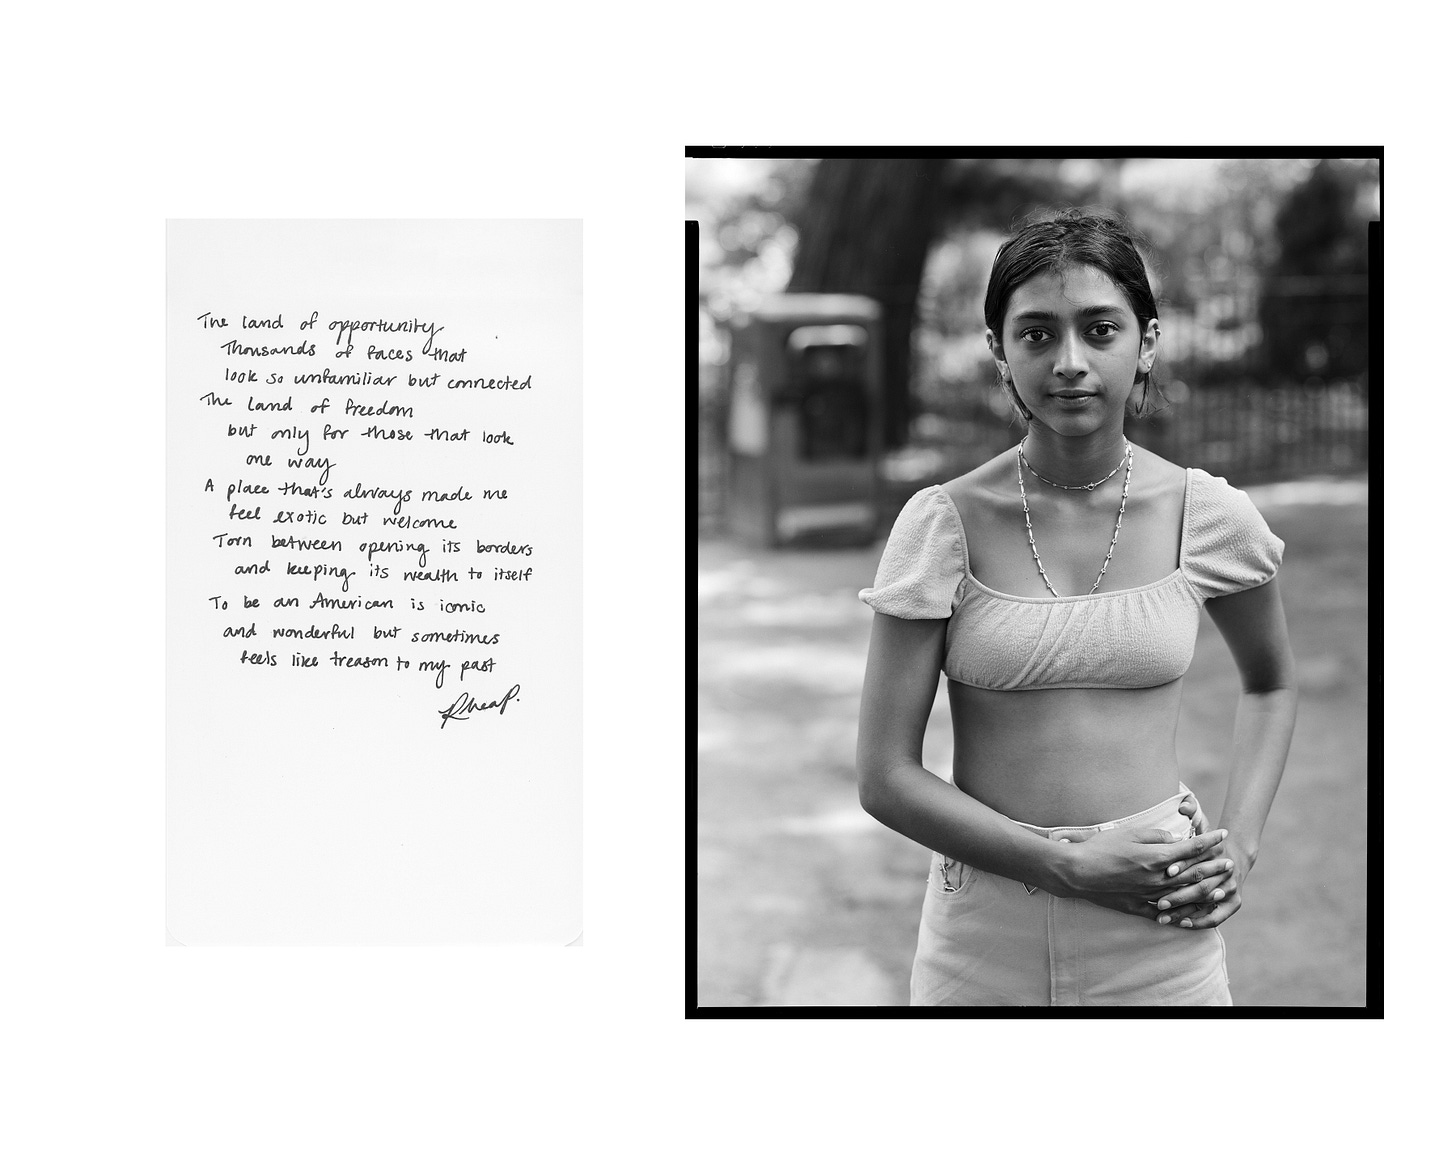 The land of opportunity
Thousands of faces that
look so unfamiliar but connected
The land of freedom
but only for those that look
one way
A place that's always made me
feel exotic but welcome
Torn between opening its borders
and keeping its wealth to itself
To be an American is iconic
and wonderful but sometimes
feels like treason to my past
Rhea P.